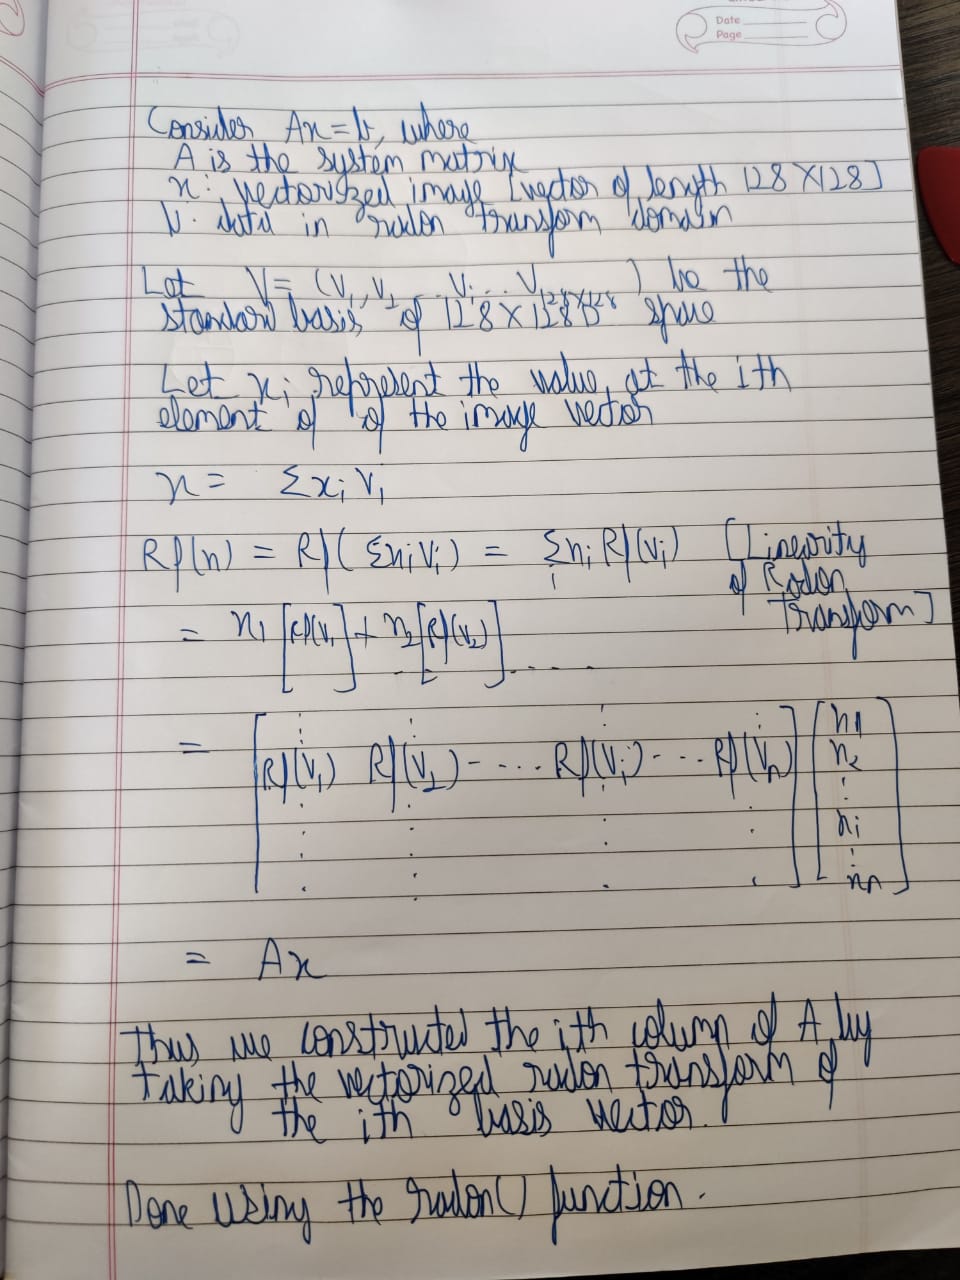 Date
Page
Consider Ax = b, where
A is the system matrix
x: vectorized image [vector of length 128 X128]
b: data in radon transform domain
Let V = (V₁, V₂ ... Vᵢ ... V₁₂₈ₓ₁₂₈) be the
standard basis of 128 x 128 space
Let xᵢ represent the value at the ith
element of of the image vector
x = Σxᵢ Vᵢ
Rf(x) = Rf( Σxᵢvᵢ) = Σxᵢ Rf(vᵢ) [Linearity
i of Radon
transform]
= x₁ [Rf(v₁)] + x₂ [Rf(v₂)] ....
= [Rf(V₁) Rf(V₂) - .... Rf(Vᵢ) - .. Rf(Vₙ)] [x₁
x₂
:
xᵢ
:
xₙ]
= Ax
Thus we constructed the ith column of A by
taking the vectorized radon transform of
the ith basis vector.
Done using the radon() function.